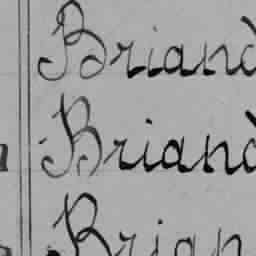 Briand
Briand
Brian